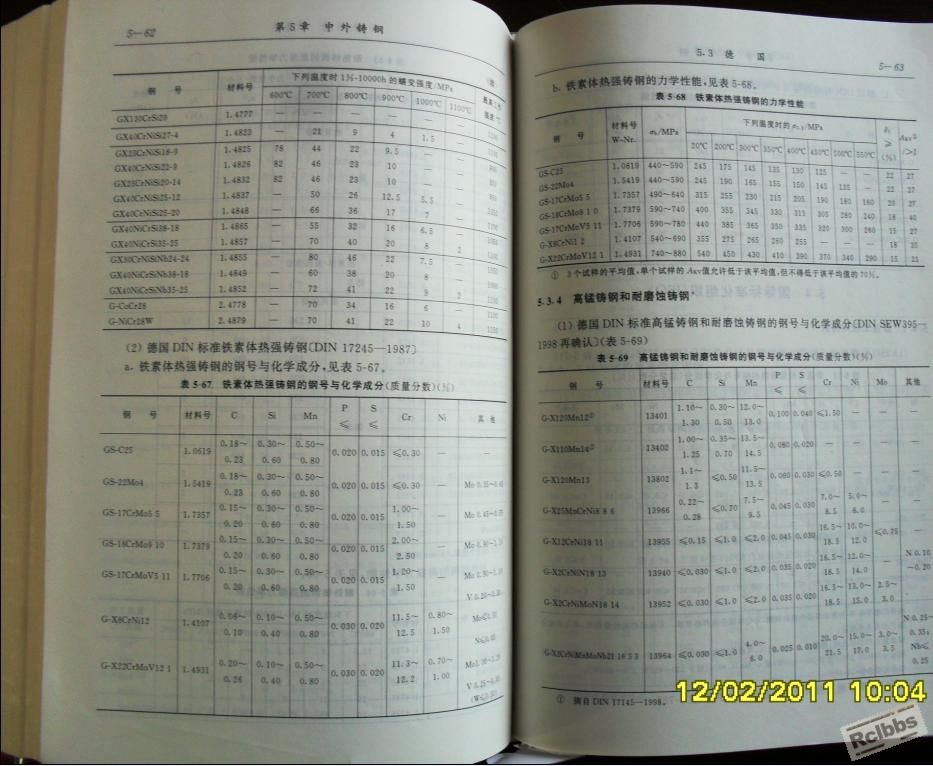 5—62 第5章 中外铸钢
钢 号 材料号 下列温度时 1%-10000h 的蠕变强度/MPa
600℃ 700℃ 800℃ 900℃ 1000℃ 1100℃
GX130CrSi29 1.4777 — — — — — —
GX40CrNiSi27-4 1.4823 — 21 9 4 1.5 —
GX25CrNiSi18-9 1.4825 78 44 22 9.5 — —
GX40CrNiSi22-9 1.4826 82 46 23 10 — —
GX25CrNiSi20-14 1.4832 82 46 23 10 — —
GX40CrNiSi25-12 1.4837 — 50 26 12.5 5.5 —
GX40CrNiSi25-20 1.4848 — 66 36 17 7 —
GX40NiCrSi38-18 1.4865 — 55 32 16 6.5 —
GX40NiCrSi35-25 1.4857 — 70 40 20 8 2
GX30CrNiSiNb24-24 1.4855 — 80 46 22 7.5 —
GX40NiCrSiNb38-18 1.4849 — 60 38 20 8 —
GX40NiCrSiNb35-25 1.4852 — 72 41 22 9 2
G-CoCr28 2.4778 — 70 34 16 6 —
G-NiCr28W 2.4879 — 70 41 22 10 4
(2) 德国 DIN 标准铁素体热强铸钢〔DIN 17245—1987〕
a. 铁素体热强铸钢的钢号与化学成分,见表 5-67。
表 5-67 铁素体热强铸钢的钢号与化学成分(质量分数)(%)
钢 号 材料号 C Si Mn P ≤ S ≤ Cr Ni 其他
GS-C25 1.0619 0.18~0.23 0.30~0.60 0.50~0.80 0.020 0.015 ≤0.30 — —
GS-22Mo4 1.5419 0.18~0.23 0.30~0.60 0.50~0.80 0.020 0.015 ≤0.30 —
GS-17CrMo5 5 1.7357 0.15~0.20 0.30~0.60 0.50~0.80 0.020 0.015 1.00~1.50 —
GS-18CrMo9 10 1.7379 0.15~0.20 0.30~0.60 0.50~0.80 0.020 0.015 2.00~2.50 —
GS-17CrMoV5 11 1.7706 0.15~0.20 0.30~0.60 0.50~0.80 0.020 0.015 1.20~1.50 —
G-X8CrNi12 1.4107 0.06~0.10 0.10~0.40 0.50~0.80 0.030 0.020 11.5~12.5 0.80~1.50
G-X22CrMoV12 1 1.4931 0.20~0.26 0.10~0.40 0.50~0.80 0.030 0.020 11.3~12.2 0.70~1.00
5.3 德 国 5—63
b. 铁素体热强铸钢的力学性能,见表 5-68。
表 5-68 铁素体热强铸钢的力学性能
钢 号 材料号 W-Nr. σb/MPa 下列温度时的
20℃ 200℃ 300℃ 350℃ 400℃ 450℃ 500℃ 550℃
GS-C25 1.0619 440~590 245 175 145 135 130 125 — — 22 27
GS-22Mo4 1.5419 440~590 245 190 165 155 150 145 135 — 22 27
GS-17CrMo5 5 1.7357 490~640 315 255 230 215 205 190 180 160 20 27
GS-18CrMo9 10 1.7379 590~740 400 355 345 330 315 305 280 240 18 40
GS-17CrMoV5 11 1.7706 590~780 440 385 365 350 335 320 300 260 15 27
G-X8CrNi1 2 1.4107 540~690 355 275 265 260 255 — — — 18 35
G-X22CrMoV12 1 1.4931 740~880 540 450 430 410 390 370 340 290 15 21
① 3个试样的平均值,单个试样的 AKV 值允许低于该平均值,但不得低于该平均值的 70%。
5.3.4 高锰铸钢和耐磨蚀铸钢
(1) 德国 DIN 标准高锰铸钢和耐磨蚀铸钢的钢号与化学成分〔DIN SEW395—
1998 再确认〕(表 5-69)
表 5-69 高锰铸钢和耐磨蚀铸钢的钢号与化学成分(质量分数)(%)
钢 号 材料号 C Si Mn P ≤ S ≤ Cr Ni Mo 其他
G-X120Mn12② 13401 1.10~1.30 0.30~0.50 12.0~13.0 0.100 0.040 ≤1.50 — — —
G-X110Mn14② 13402 1.00~1.25 0.35~0.70 13.5~14.5 0.080 0.020 — — — —
G-X120Mn13 13802 1.1~1.3 ≤0.50 11.5~13.5 0.080 0.030 ≤0.50 — — —
G-X25MnCrNi8 8 6 13966 0.22~0.28 ≤0.70 7.5~9.5 0.045 0.030 7.0~8.5 5.0~6.0 — —
G-X12CrNi18 11 13955 ≤0.15 ≤1.0 ≤2.0 0.045 0.030 16.5~18.5 10.0~12.0 ≤0.75 —
G-X2CrNiN18 13 13940 ≤0.030 ≤1.0 ≤2.0 0.035 0.020 16.5~18.5 12.0~14.0 — N 0.10~0.20
G-X2CrNiMoN18 14 13952 ≤0.030 ≤1.0 ≤2.0 0.035 0.020 16.5~18.5 13.0~15.0 2.5~3.0 —
G-X3CrNiMnMoNbN21 16 5 3 13964 ≤0.030 ≤1.0 4.0~6.0 0.025 0.010 20.0~21.5 15.0~17.0 3.0~3.5 N 0.25~0.35; Nb≤0.25
① 摘自 DIN 17145—1998。
12/02/2011 10:04
Rclbbs